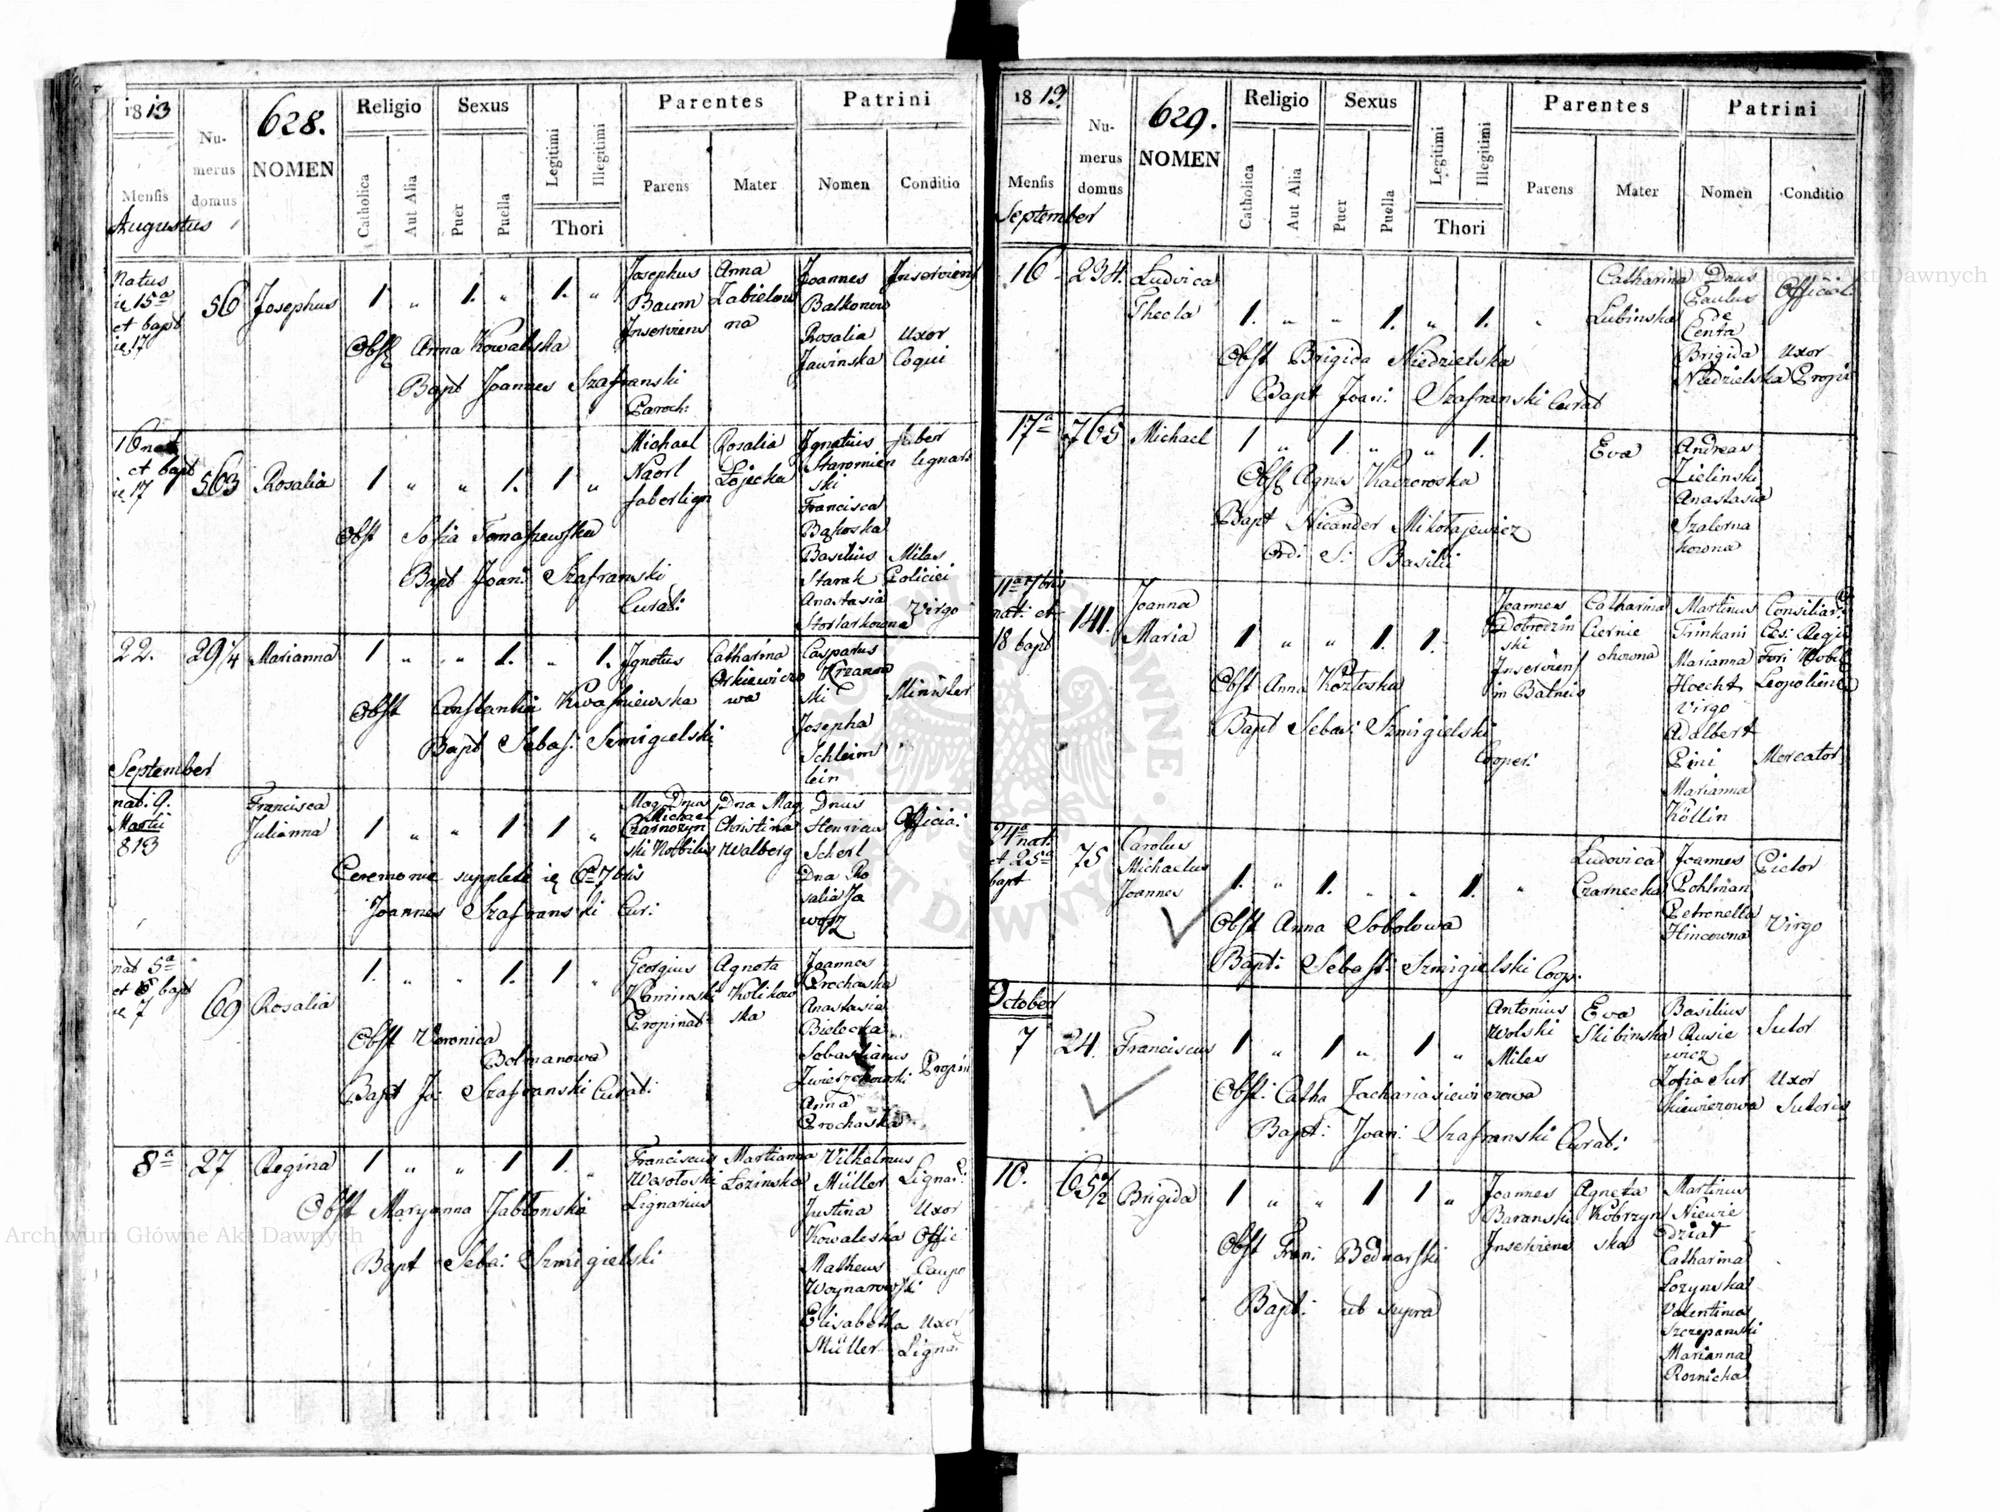 1813
Numerus domus
628.
NOMEN
Religio
Sexus
Legitimi
Illegitimi
Parentes
Patrini
Mensis
Catholica
Aut Alia
Puer
Puella
Thori
Parens
Mater
Nomen
Conditio
Augustus
Natus
et bapt
56
Josephus
1 " 1. " 1. "
Josephus
Baum
Inserviens
Anna
na
Joannes
Rosalia
Jawinska
Uxor
Coqui
Obst Anna Kowalska
Bapt Joannes Szafranski
Paroch:
16 nat
et bapt
563
Rosalia
1 " " 1. 1 "
Michael
Rosalia
Łojecka
Ignatius
Staromiey
ski
Francisca
Basilius
Starak
Anastasia
Faber
lignari
Miles
Policiei
Virgo
Obst Sofia Tomaszewska
Bapt Joan: Szafranski
Curat:
22.
29 1/4
Marianna
1 " " 1. " 1.
Ignotus
Catharina
Orkiewiczo
wa
Casparus
Krzanow
ski
Josepha
Schleim
lein
Minister
Obst Constantia Kwasniewska
Bapt Sebas: Szmigielski
September
nat: 9.
Martii
813
Francisca
Julianna
1 " " 1 1 "
Mag Dnus
Michael
Czarnozyn
ski Nobilis
Dna Mag
Christina
Walberg
Dnus
Henricus
Scherl
Dna Ro
salia Ja
Officia:
Ceremoniae suppletae 6a 7bris
Joannes Szafranski Cur:
nat 5a
et bapt
7
69
Rosalia
1. " " 1. 1 "
Georgius
Kaminski
Propinat
Agneta
Kolikow
ska
Joannes
Prochaska
Anastasia
Bielecka
Sebastianus
Zwierzchowski
Anna
Prochaska
Propin
Obst Veronica
Bolmanowa
Bapt Jo: Szafranski Curat:
8a
27
Regina
1 " " 1 1. "
Franciscus
Wesołoski
Lignarius
Martianna
Łozinska
Wilhelmus
Müller
Justina
Kowaleska
Matheus
Woynarowski
Elisabetha
Müller
Uxor
Offic
Caupo
Uxor
Ligna
Obst Maryanna Jabłonska
Bapt Seba: Szmigielski
1813.
Numerus domus
629.
NOMEN
Religio
Sexus
Legitimi
Illegitimi
Parentes
Patrini
Mensis
Catholica
Aut Alia
Puer
Puella
Thori
Parens
Mater
Nomen
Conditio
September
16
234.
Ludvica
Thecla
1. " " 1. " 1. "
Catharina
Lubinska
Dnus
Paulus
de
Centa
Brigida
Niedzielska
Official:
Uxor
Propin
Obst Brigida Niedzielska
Bapt Joan: Szafranski Curat
17a
765
Michael
1 " 1. " " 1.
Eva
Andreas
Zielinski
Anastasia
Szalerna
kowna
Obst Agnes Kaczoroska
Bapt Nicander Mikołajewicz
Ord: S: Basilii
11a 7bris
nat: et
18 bapt
141.
Joanna
Maria
1 " " 1. 1.
Joannes
Dobrodzin
ski
Inservien
in Balneis
Catharina
Ciernie
chowna
Martinus
Trinkani
Marianna
Hoecht
Virgo
Adalbert
Pini
Marianna
Köllin
Consiliar:
Caes: Regii
Fori Nobil
Leopoliens
Mercator
Obst Anna Kozłoska
Bapt Sebas: Szmigielski
Cooper:
24a nat:
et 25a
bapt
75
Carolus
Michaelus
Joannes
1. " 1. " " 1. "
Ludovica
Czarnecka
Joannes
Pohlman
Petronella
Hincowna
Pictor
Virgo
Obst Anna Sobolowa
Bapt: Sebast: Szmigielski Coop.
October
7
24.
Franciscus
1 " 1 " 1 "
Antonius
Wolski
Miles
Eva
Skibinska
Basilius
Rusie
wicz
Zofia Sut
kiewiczowa
Sutor
Uxor
Sutoris
Obst: Catha Zachariasiewiczowa
Bapt: Joan: Szafranski Curat:
10.
65 1/2
Brigida
1 " " 1 1 "
Joannes
Baranski
Inserviens
Agneta
Kobrzyn
ska
Martinus
Niewie
dział
Catharina
Łozynska
Valentinus
Szczepanski
Marianna
Roznicka
Obst Fran: Bednarski
Bapt: ut supra
Archiwum Główne Akt Dawnych